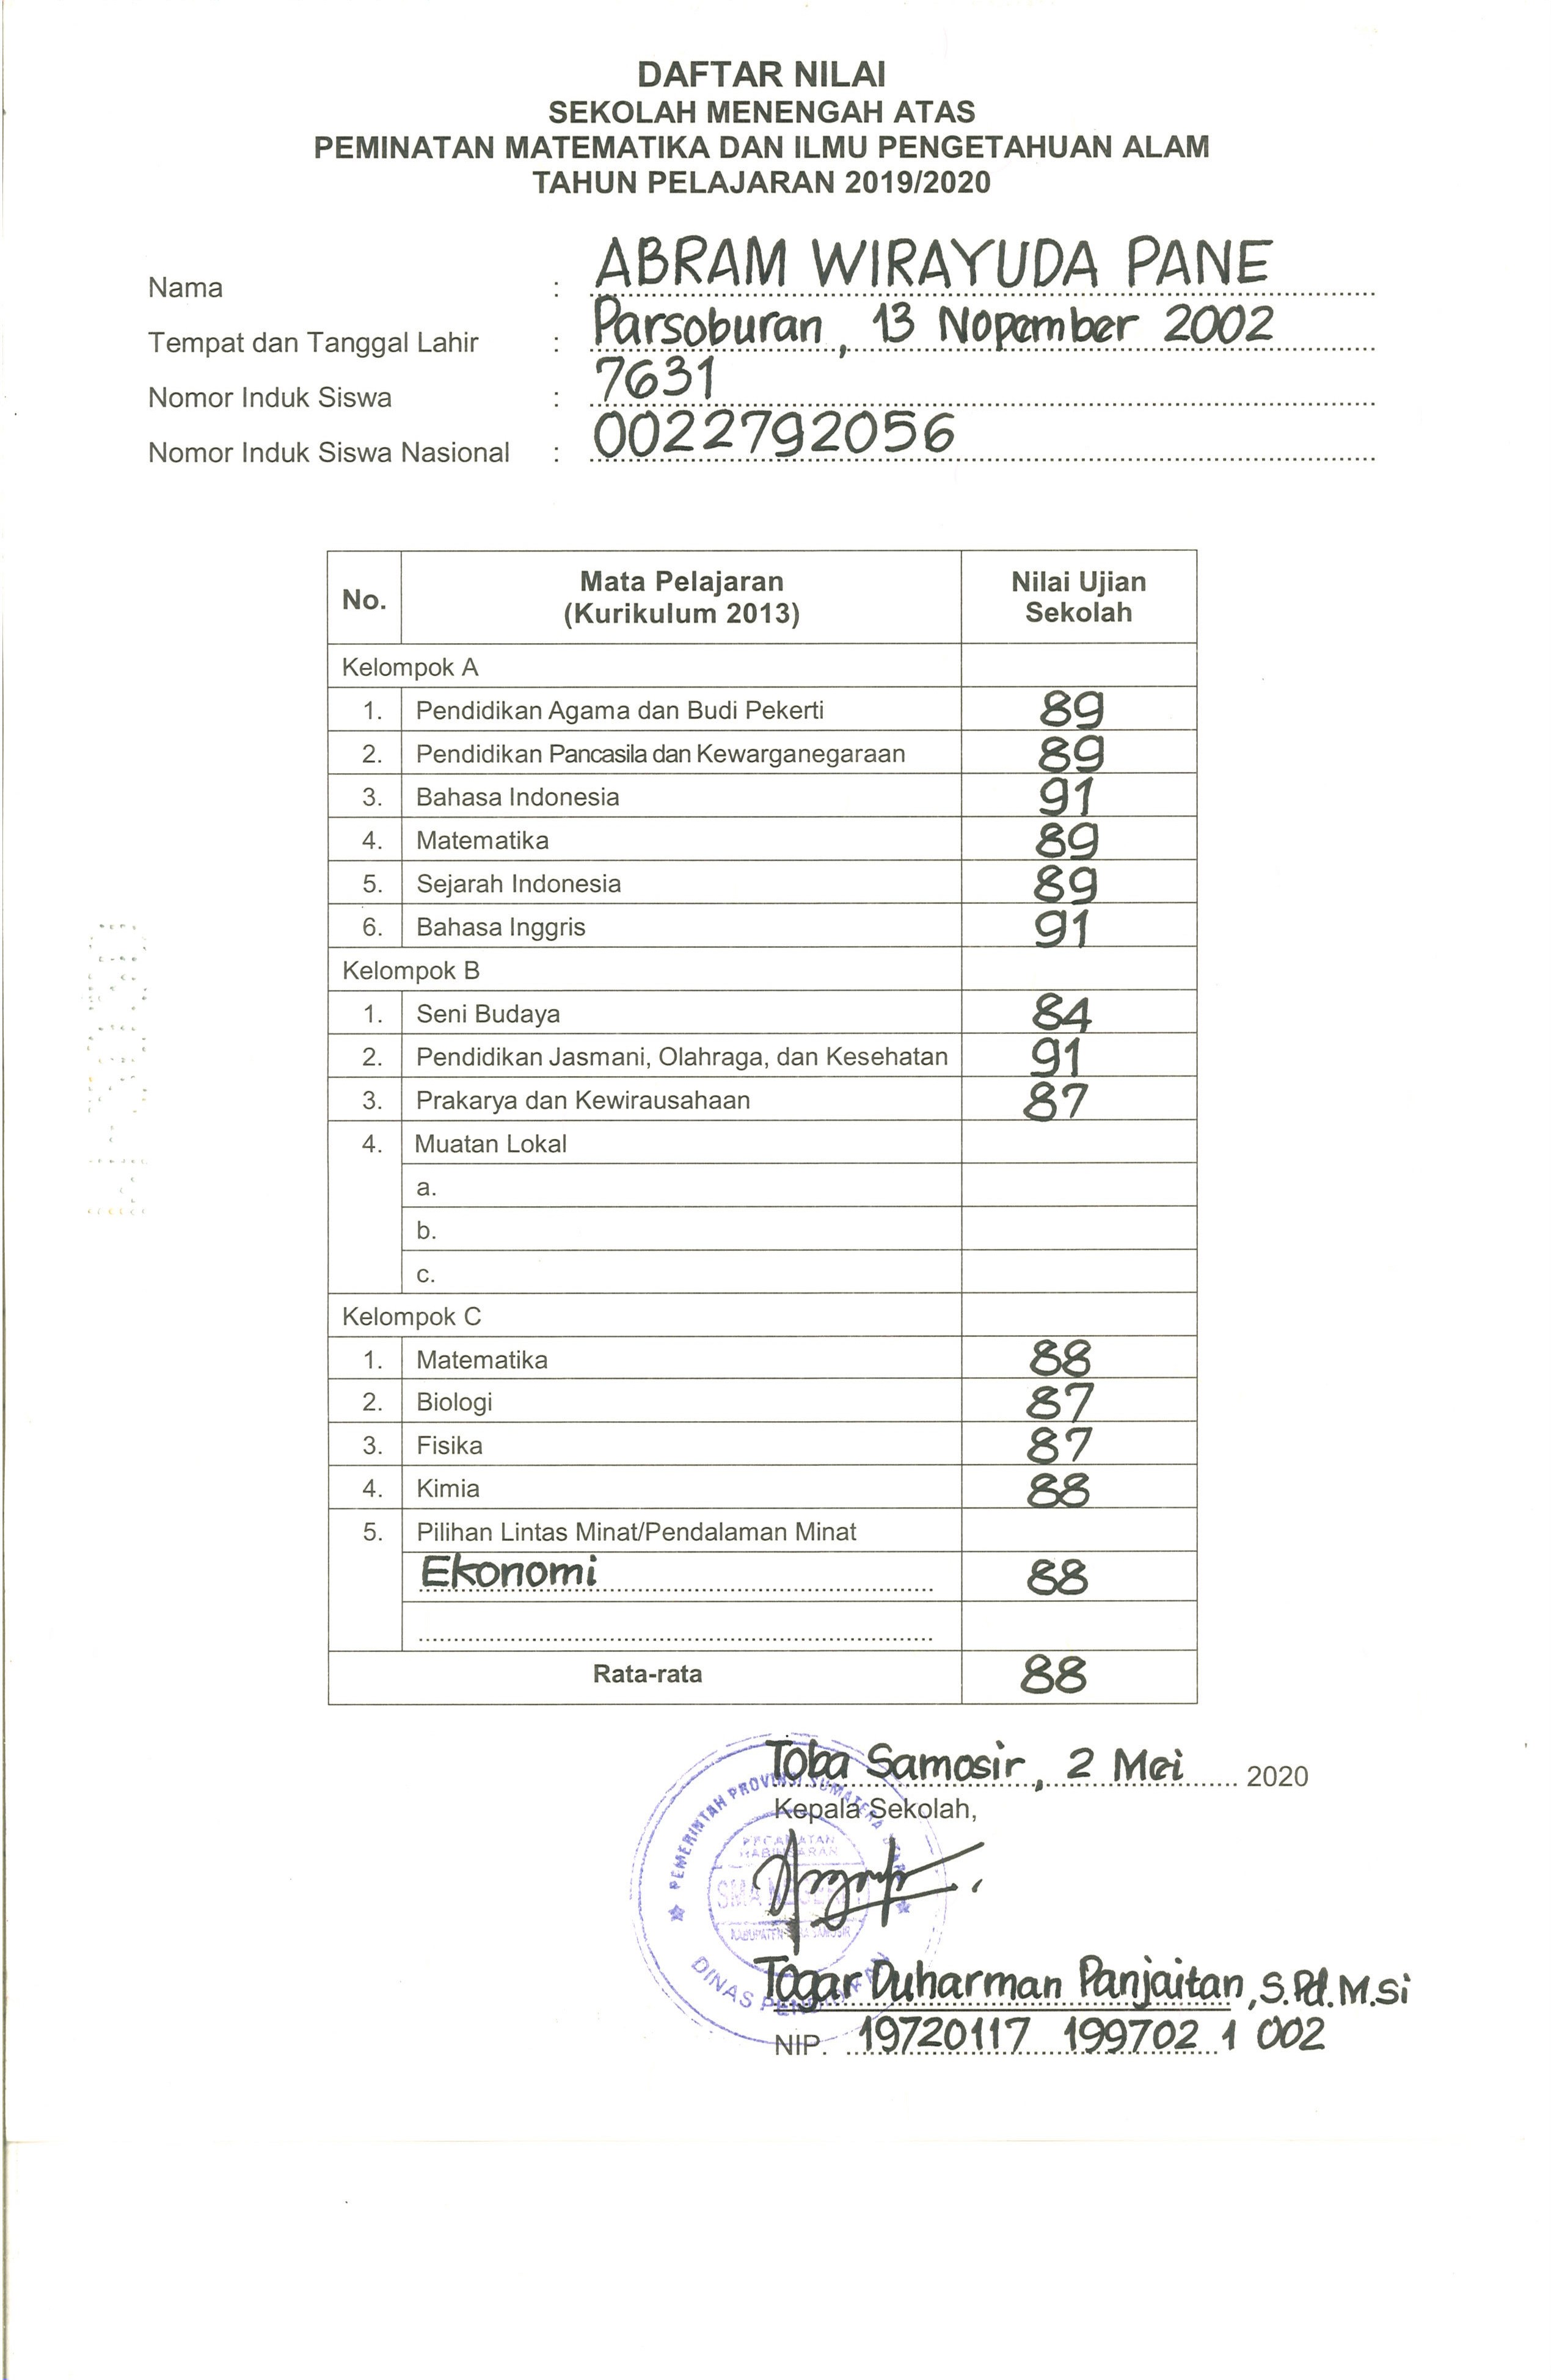 DAFTAR NILAI
SEKOLAH MENENGAH ATAS
PEMINATAN MATEMATIKA DAN ILMU PENGETAHUAN ALAM
TAHUN PELAJARAN 2019/2020
Nama : ABRAM WIRAYUDA PANE
Tempat dan Tanggal Lahir : Parsoburan, 13 Nopember 2002
Nomor Induk Siswa : 7631
Nomor Induk Siswa Nasional : 0022792056
No. Mata Pelajaran (Kurikulum 2013) Nilai Ujian Sekolah
Kelompok A
1. Pendidikan Agama dan Budi Pekerti 89
2. Pendidikan Pancasila dan Kewarganegaraan 89
3. Bahasa Indonesia 91
4. Matematika 89
5. Sejarah Indonesia 89
6. Bahasa Inggris 91
Kelompok B
1. Seni Budaya 84
2. Pendidikan Jasmani, Olahraga, dan Kesehatan 91
3. Prakarya dan Kewirausahaan 87
4. Muatan Lokal
a.
b.
c.
Kelompok C
1. Matematika 88
2. Biologi 87
3. Fisika 87
4. Kimia 88
5. Pilihan Lintas Minat/Pendalaman Minat
Ekonomi 88
Rata-rata 88
Toba Samosir, 2 Mei 2020
Kepala Sekolah,
PEMERINTAH PROVINSI SUMATERA
KECAMATAN
HABINSARAN
SMA NEGERI
KABUPATEN TOBA SAMOSIR
DINAS PENDIDIKAN
Togar Duharman Panjaitan, S.Pd. M.Si
NIP. 19720117 199702 1 002